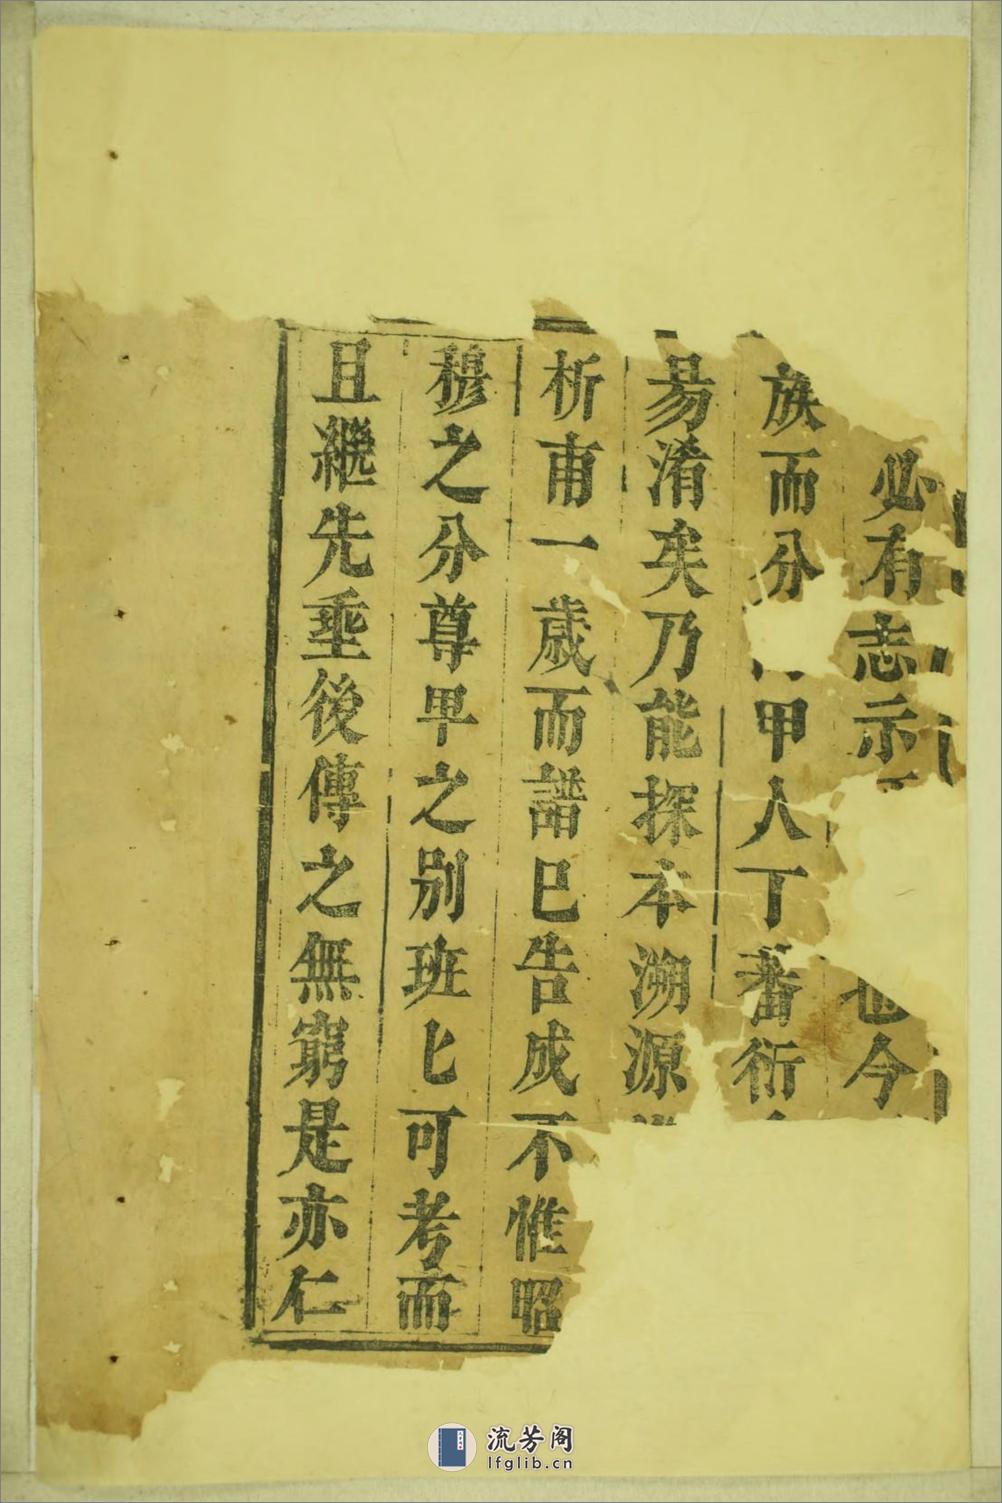 必有志示也今
族而分甲人丁蕃衍
易淆矣乃能探本溯源
析甫一歲而譜已告成不惟昭
穆之分尊卑之别班匕可考而
且繼先埀後傳之無窮是亦仁
流芳阁
lfglib.cn